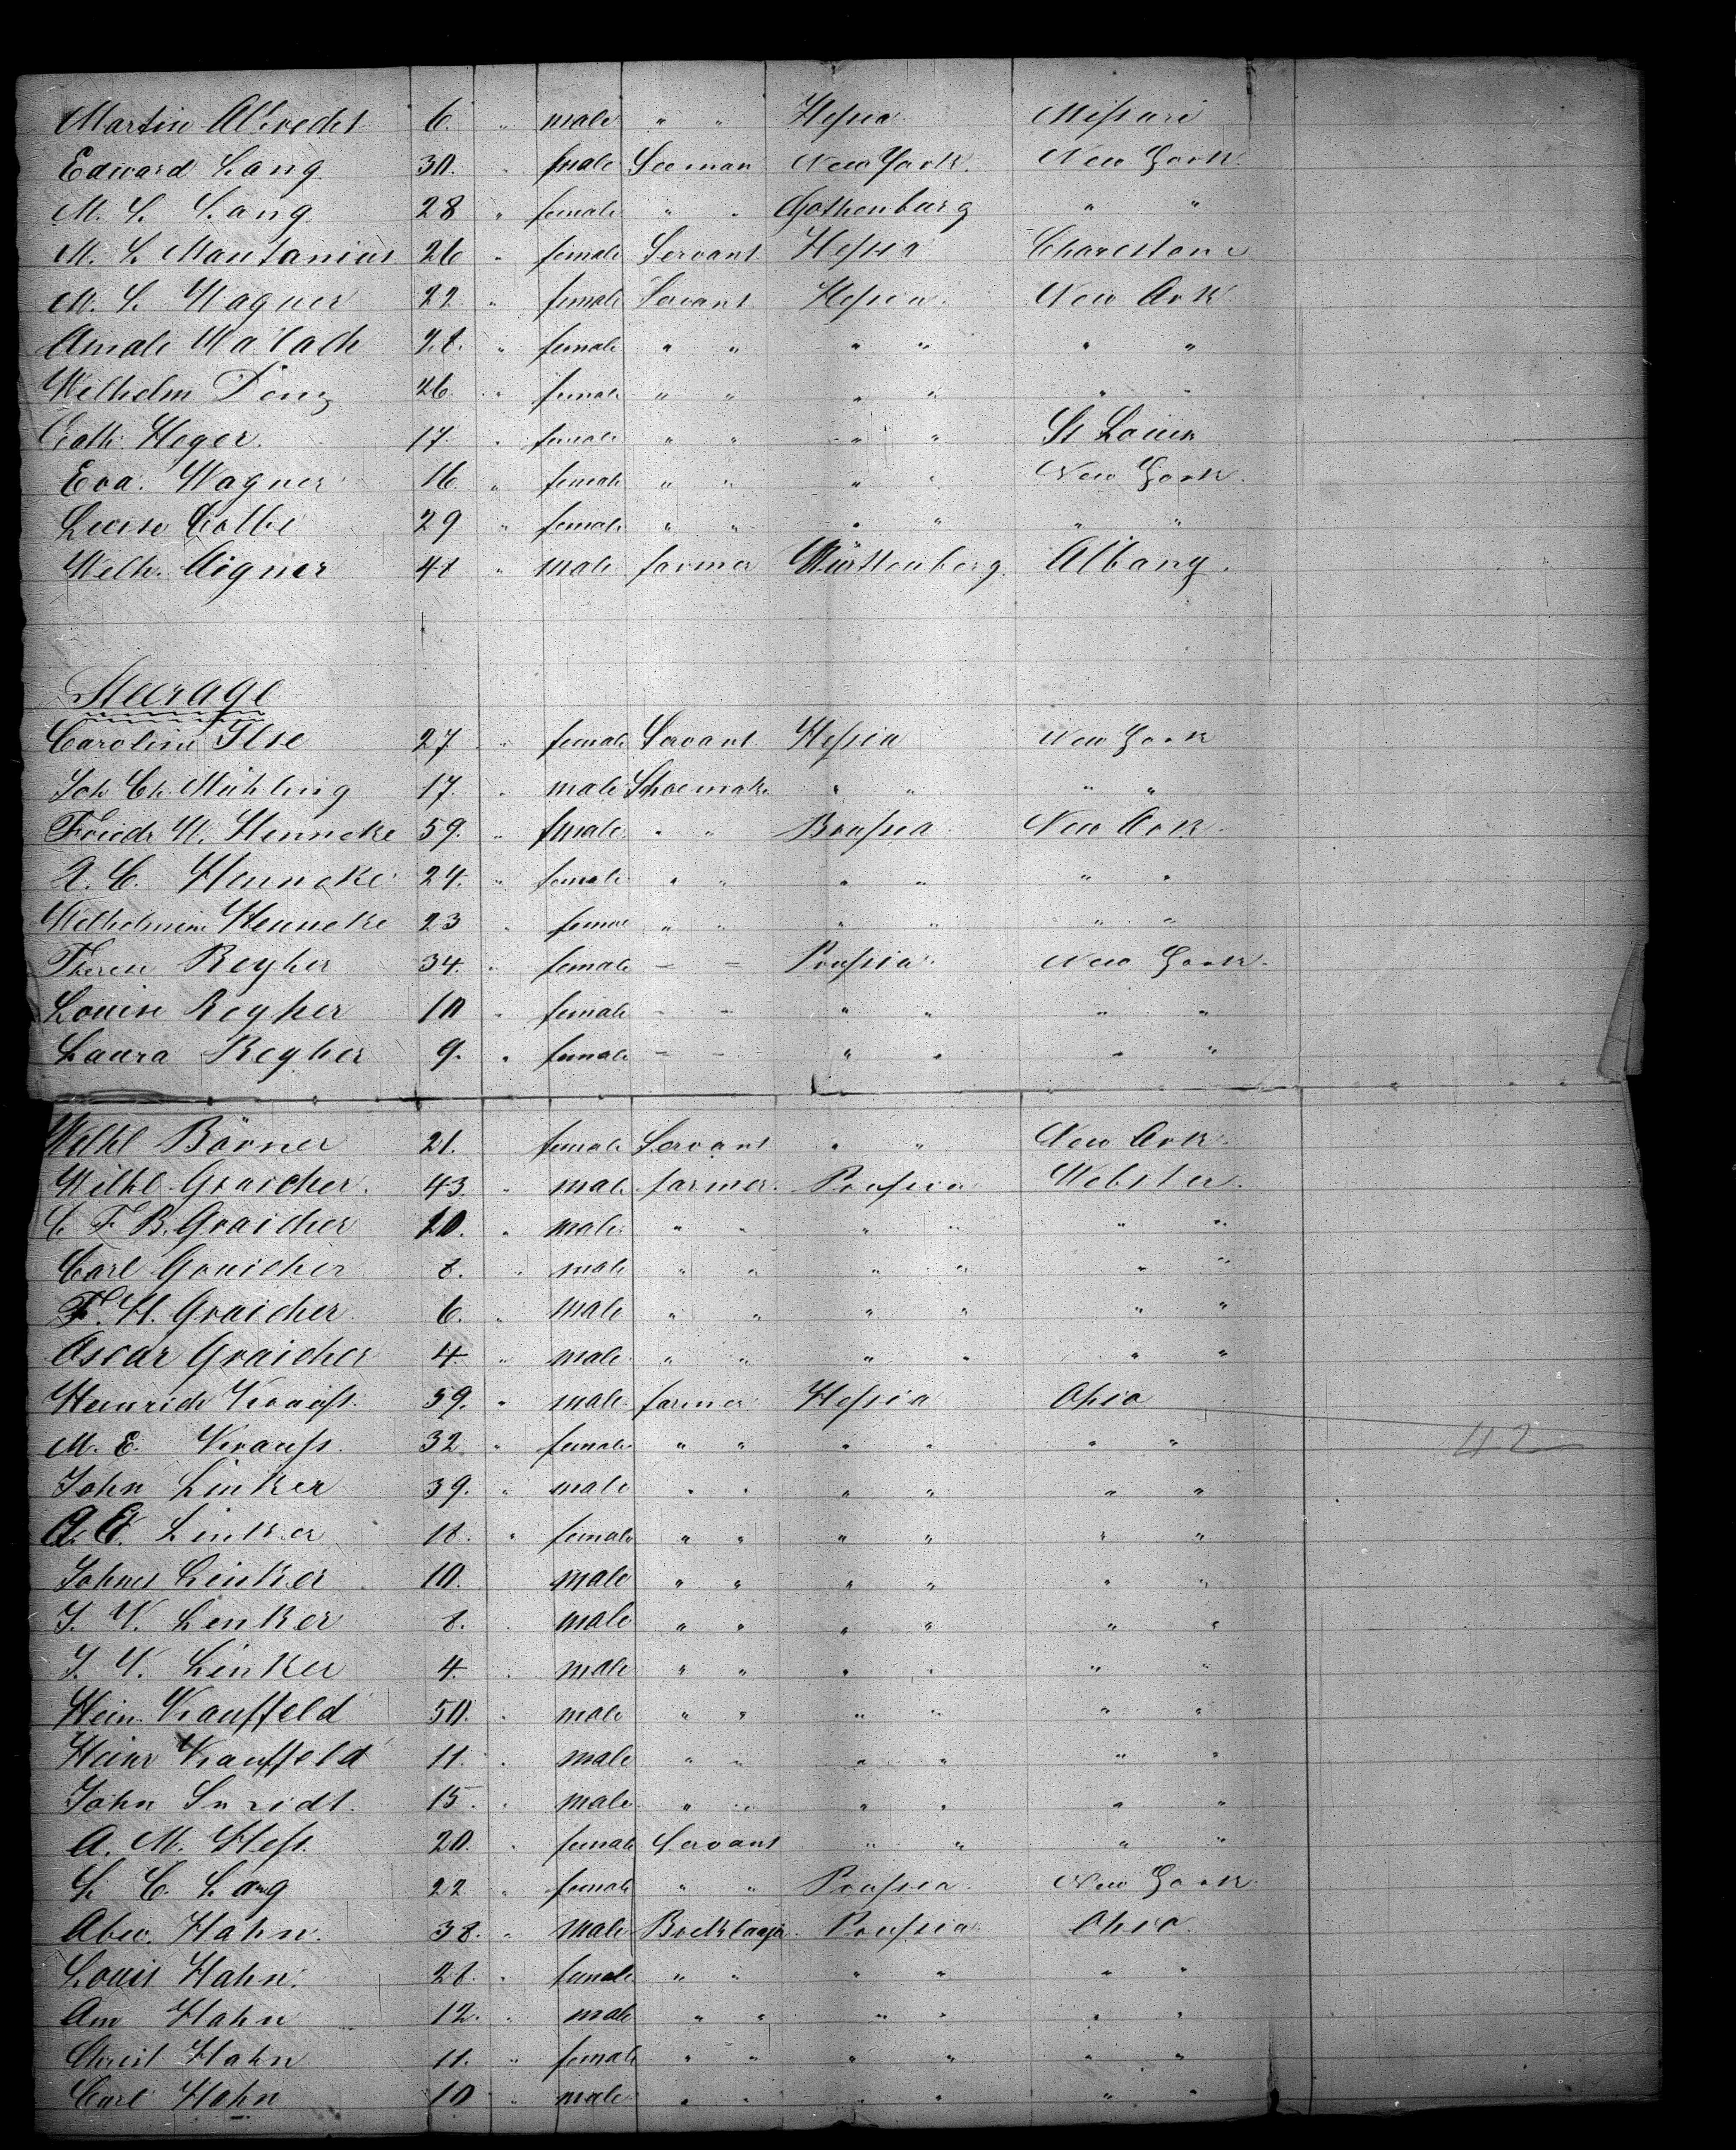 Martin Albrecht 6. " male " " Heßia Mißuri
Edward Lang 30. " male Seeman New York. New York
M. L. Lang 28 " female " " Gothenburg " "
M. L. Montanius 26 " female Servant Heßia Charestone
M. L. Wagner 22. " female Servant Heßia New Ork.
Amale Walach 28. " female " " " " " "
Wilhelm Döng 26. " female " " " " " "
Cath. Heger 17. " female " " " " St Louis
Eva. Wagner 16 " female " " " " New York.
Luise Colbe 29 " female " " " " " "
Wilh. Aigner 48 " male farmer Württenberg. Albany.
Steerage
Caroline Ilse 27 " female Servant Heßia New York
Joh Ch. Mühling 17. " male Shoemake " " " "
Friedr W. Henneke 59. " male " " Prußia New Ork.
A. C. Henneke 24. " female " " " " " "
Wilhelmine Henneke 23 " female " " " " " "
Therese Reyher 34. " female – – Prußia. New York.
Louise Reyher 10 " female – – " " " "
Laura Reyher 9. " female – – " " " "
Wilhl Börner 21. female Servant " " New Ork.
Wilhl Graicher. 43. " male farmer. Prußia Webster.
C. F. B. Graicher 10. " male " " " " " "
Carl Graicher 8. " male " " " " " "
F. H. Graicher 6. " male " " " " " "
Oscar Graicher 4. " male " " " " " "
Heinrich Krauß. 59. " male farmer Heßia Ohio
M. E. Krauß. 32 " female " " " " " " 42
John Linker 39. " male " " " " " "
A. E. Linker 18. " female " " " " " "
Johnes Linker 10. male " " " " " "
J. K. Linker 8. " male " " " " " "
J. K. Linker 4. " male " " " " " "
Hein. Kauffeld 50. " male " " " " " "
Heinr Kauffeld 11. " male " " " " " "
John Smidt. 15. " male " " " " " "
A. M. Heß. 20. " female Servant " " " "
L. C. Lang 22 " female " " Prußia. New York.
Abu. Hahn. 38. " male Prußia. Ohio.
Louis Hahn. 28. " female " " " " " "
Am Hahn 12. " male " " " " " "
Christ Hahn 11. " female " " " " " "
Carl Hahn 10 " male " " " " " "